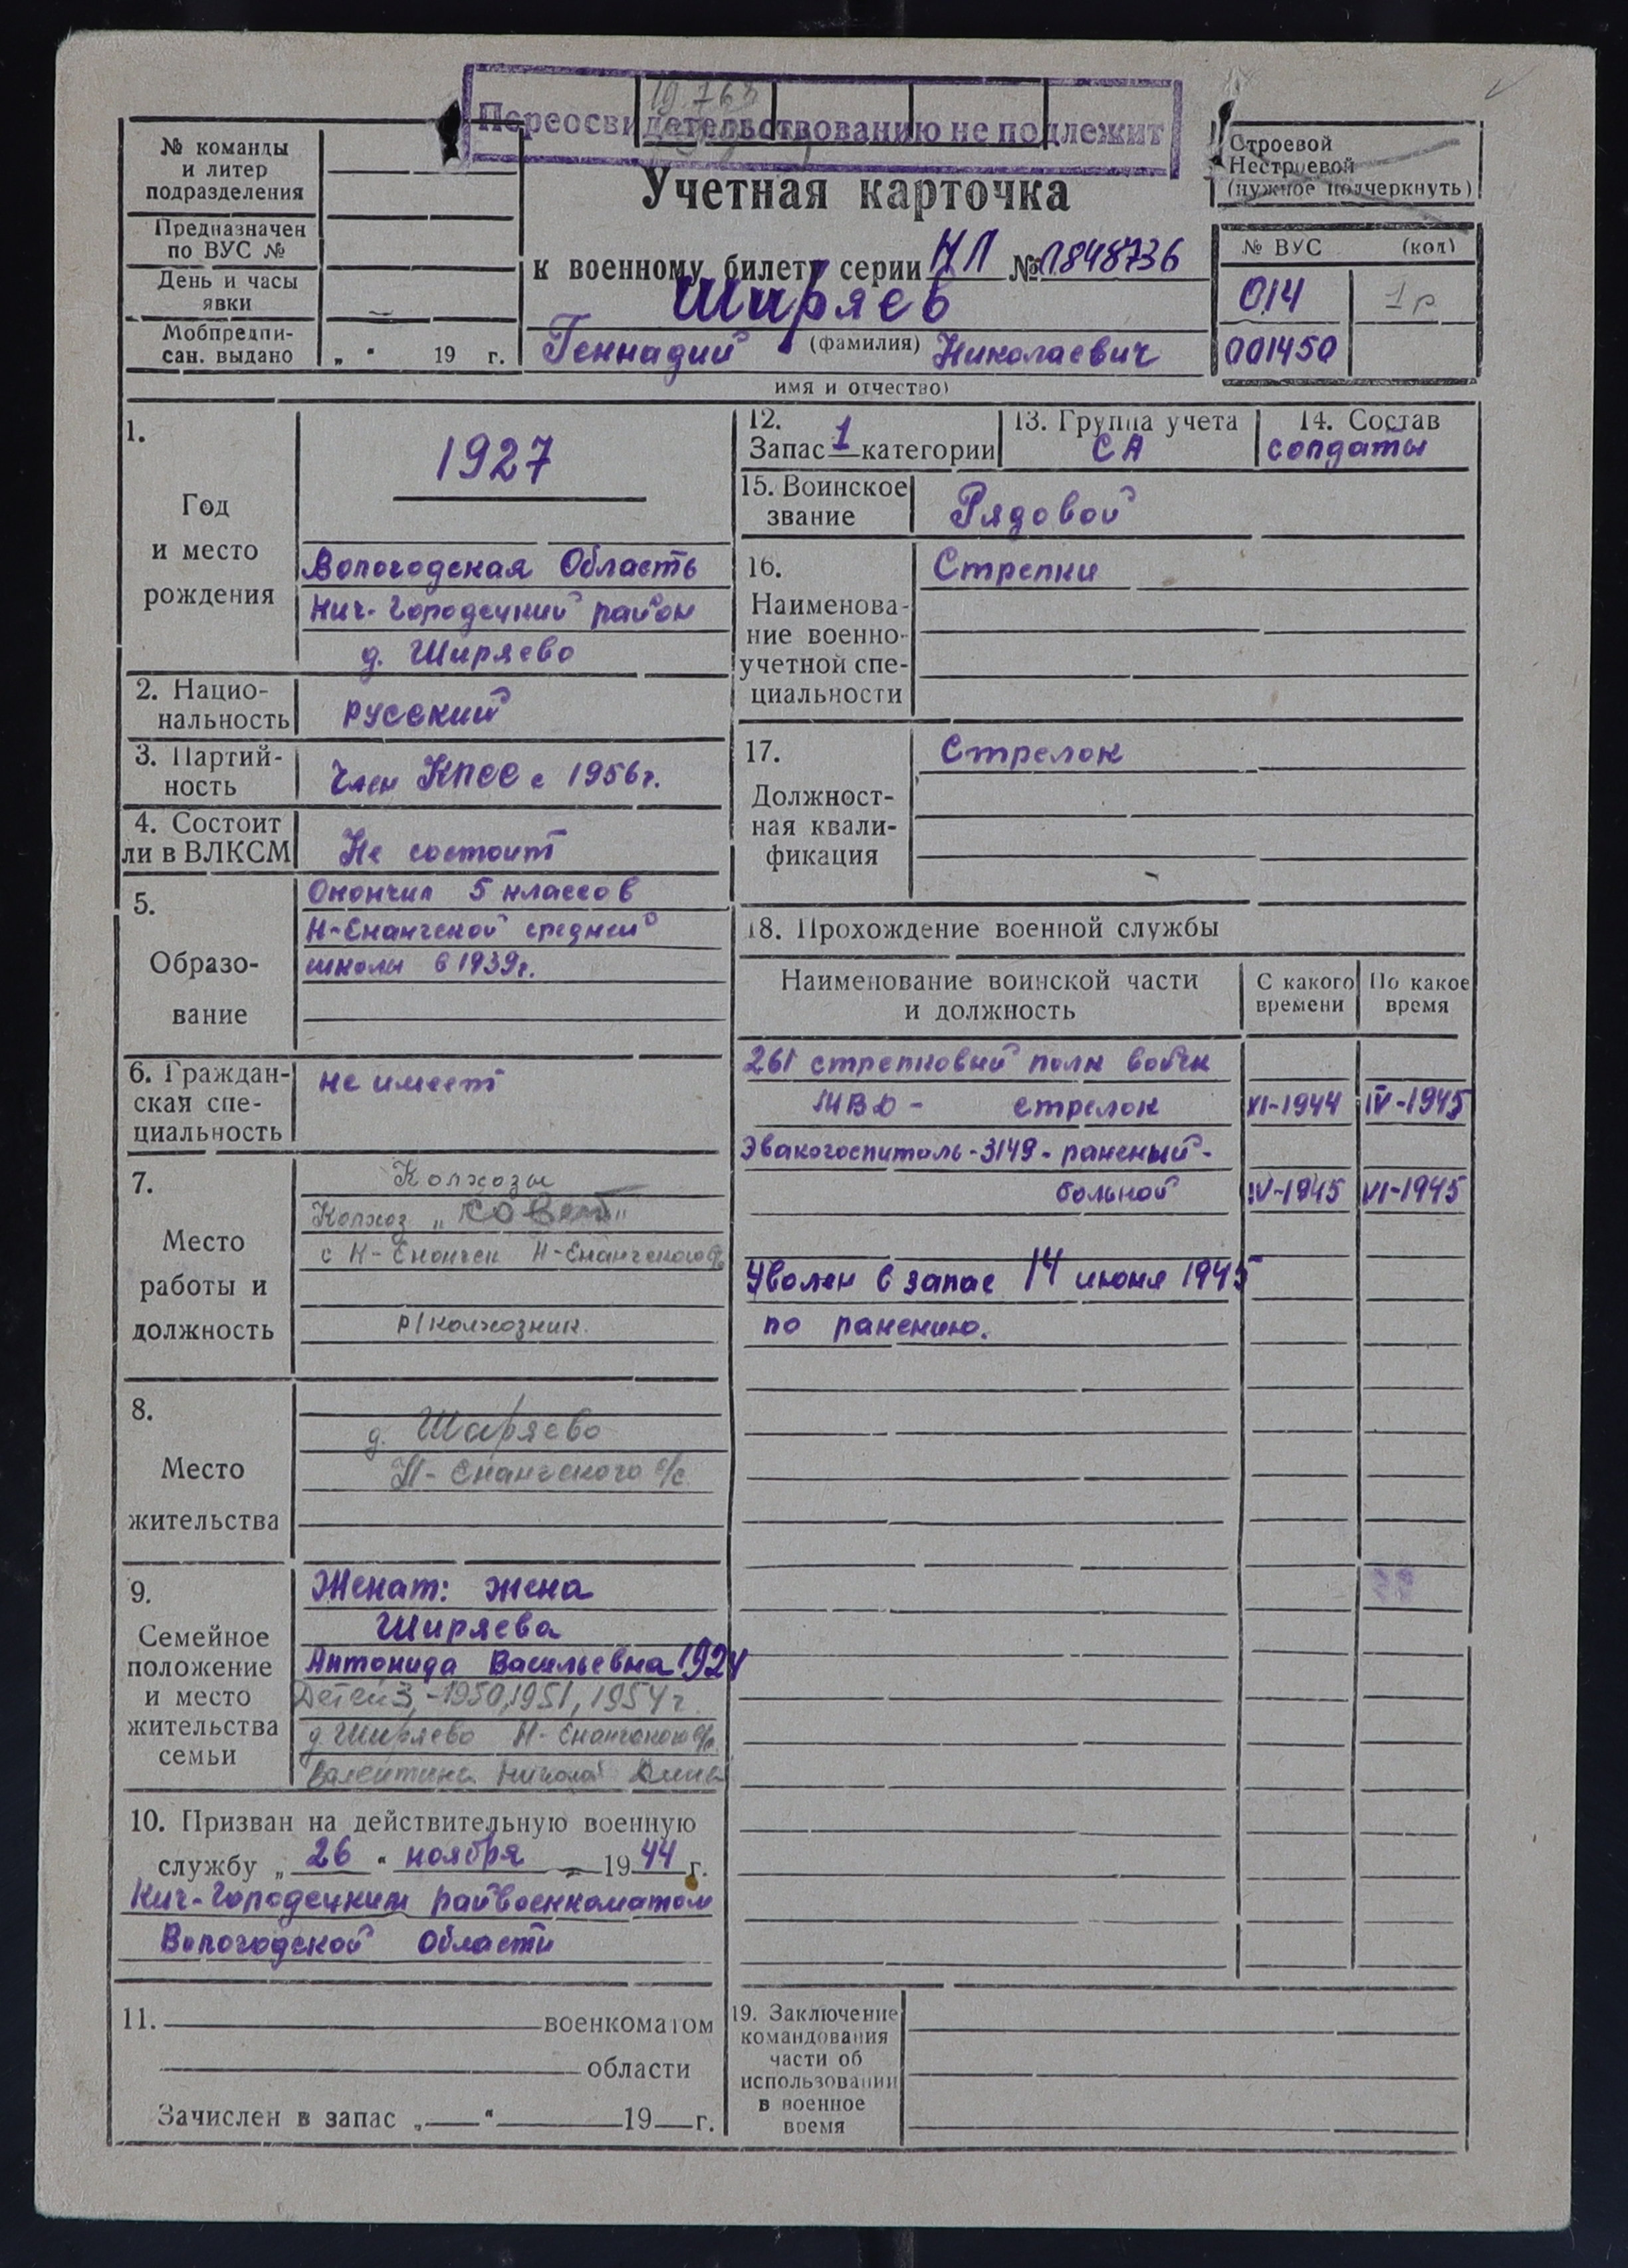 Переосвидетельствованию не подлежит
№ команды
и литер
подразделения
Предназначен
по ВУС №
День и часы
явки
Мобпредпи-
сан. выдано „ " 19 г.
Учетная карточка
к военному билету серии НЛ № 1848736
Ширяев
(фамилия)
Геннадий Николаевич
имя и отчество)
Строевой
Нестроевой
(нужное подчеркнуть)
№ ВУС (код)
014 1р
001450
1.
Год
и место
рождения
1927
Вологодская Область
Кич-Городецкий район
д. Ширяево
2. Нацио-
нальность
русский
3. Партий-
ность
Член КПСС с 1956г.
4. Состоит
ли в ВЛКСМ
Не состоит
5.
Образо-
вание
Окончил 5 классов
Н-Енангской средней
школы в 1939г.
6. Граждан-
ская спе-
циальность
не имеет
7.
Место
работы и
должность
Колхозы
Колхоз „Совет"
р/колхозник.
8.
Место
жительства
д. Ширяево
Н-Енангского с/с.
9.
Семейное
положение
и место
жительства
семьи
Женат: жена
Ширяева
Антонида Васильевна 1924
Детей 3, -1950, 1951, 1954 г.
д. Ширяево Н-Енангского с/с.
Валентина Николай
10. Призван на действительную военную
службу „ 26 " ноября 1944 г.
Кич-Городецким райвоенкоматом
Вологодской Области
11. военкоматом
области
Зачислен в запас „ " 19 г.
12.
Запас 1 категории
13. Группа учета
СА
14. Состав
солдаты
15. Воинское
звание
Рядовой
16.
Наименова-
ние военно-
учетной спе-
циальности
Стрелки
17.
Должност-
ная квали-
фикация
Стрелок
18. Прохождение военной службы
Наименование воинской части
и должность
С какого
времени
По какое
время
261 стрелковый полк войск
МВД - стрелок XI-1944 IV-1945
Эвакогоспиталь-3149-раненый-
больной IV-1945 VI-1945
Уволен в запас 14 июня 1945
по ранению.
19. Заключение
командования
части об
использовании
в военное
время